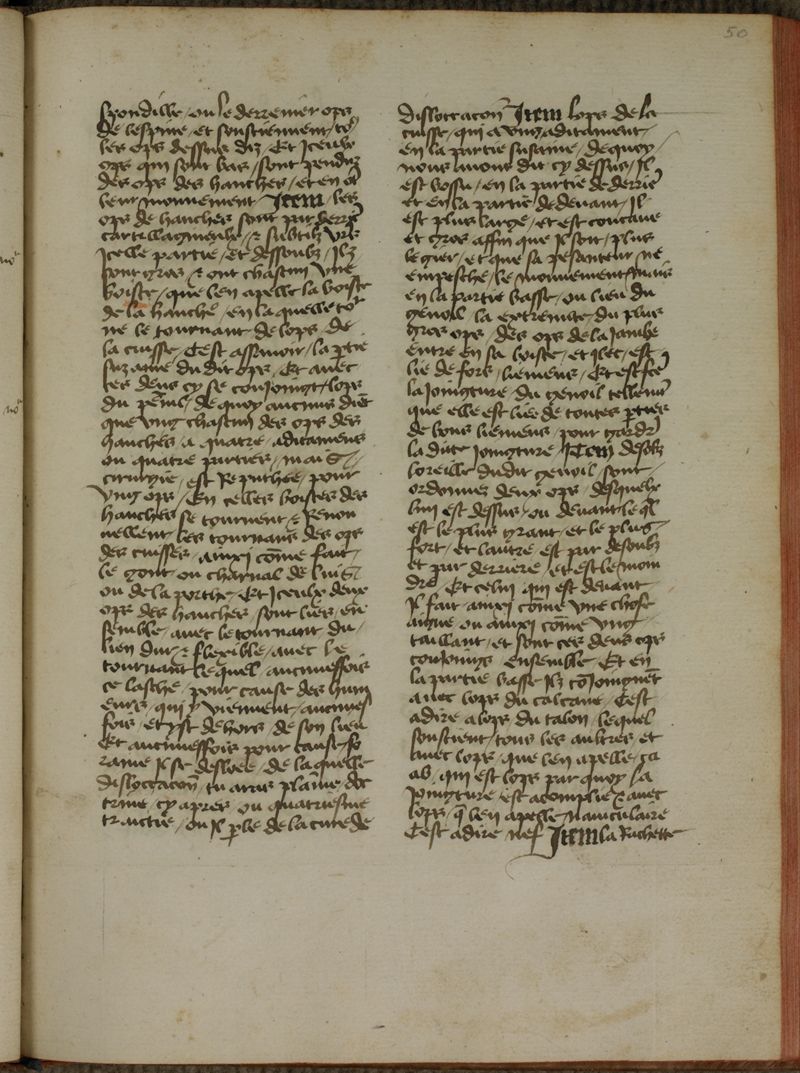 50
spondille / ou le derrenier ops
de lespine / et soustiennent / to9
les ops dessus diz / Et Iceulx
ops qui sont bas / sont penduz
des ops des hanches / et en ot
leur mouuement Item / les
ops de hanches sont par derrie
cartillagineulx / & subtilz vers
Icelle partie / Et dessoubz / Ilz
sont gros / & ont chascun vne
boiste / que len apelle la boiste
de la hanche / en laquelle tor
ne le tournant de lops de
la cuisse / Cest assauoir / la ptie
suzaine du dit ops / Et auec
ces deus cy se conioingt / lops
du penil / de quoy aucuns diet
que vng chascun des ops des
hanches / a quatre aditamens
ou quatre parties / mais
cirurgie / est Reputhee / pour
vng ops / En celles boistes des
hanches se tournent / & Renou
uellent les tournans des ops
des cuisses / ainxi come fait /
le gont ou charnal de luis
ou de la porte / Et Iceulx deux
ops des hanches / sont liez / en
semble / auec le tournant du /
lien dur / & flexible / auec le
tournant lequel aucunesfois
ce lasche / pour cause des hum
eurs / qui y viennent / aucunes
fois / et yst dehors / de son lieu
Et aucunesfois pour cause fo
raine Il se desloee / de laquelle
dislocacon / tu auras plaine doc
trine / cy apres ou quatriesme
traictie / ou Il ple de la cure de
dislocacon Item lops de la
cuisse / qui a vng aditament /
en la partie suzaine / de quoy /
nous auons dit cy dessus / Il
est bossu / en la partie de derrie
et en la partie de deuant / Il
est plus large / et est concaue
et gros affin que Il soit / plus
legier / et que sa pesanteur ne
empesche / le mouuement / mais
en la partie basse / ou lieu du
genoil la extremite du plus
gros ops / des ops de la Jambe
entre en sa boiste / et Ilec / est
lie de fors liemens / Et est fce
la Joingture du genoil tellemt
que elle est liee de toutes pties
de bons liemens / pour gardr
la dite Joingture Item desobz
loreille dudit genoil sont /
ordonnez deux ops / desquelx
lun est dessus / ou deuant leql
est le plus grant / et le plus
fort / et lautre est par desoubz
et par derriere / et est le moin
dre / Et celui qui est deuant
Il fait ainxi come vne chose
aigue ou ainxi come vng
taillant / et sont ces deus ops
conioings ensemble Et en
la partie basse Ilz coioignet
auec lops du calcane / Cest
adire a lops du talon / lequel
soustient / tous les aultres et
auec lops / que len apelle / ca
ab / qui est lops par quoy la
Joingture est acomplie & auec
lops / q len apelle / nauiculaire
Cest adire nef Item la Rachette